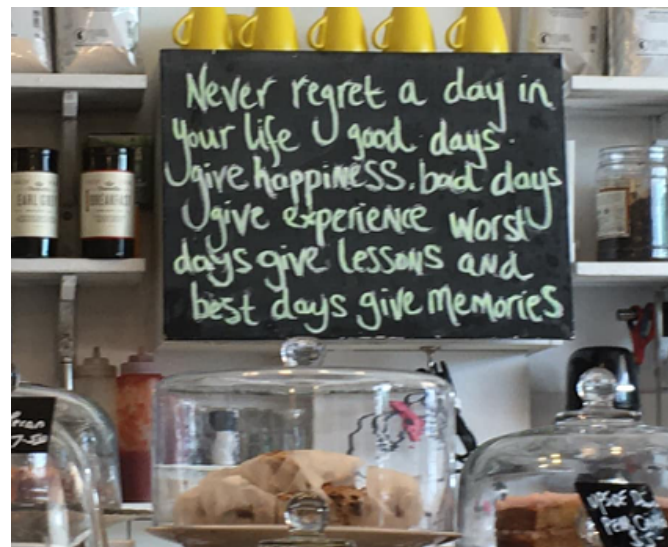 Never regret a day in
your life good days.
give happiness. bad days
give experience worst
days give lessons and
best days give memories
EARL GREY
BREAKFAST